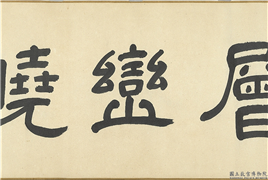 層巒曉
國立故宮博物院